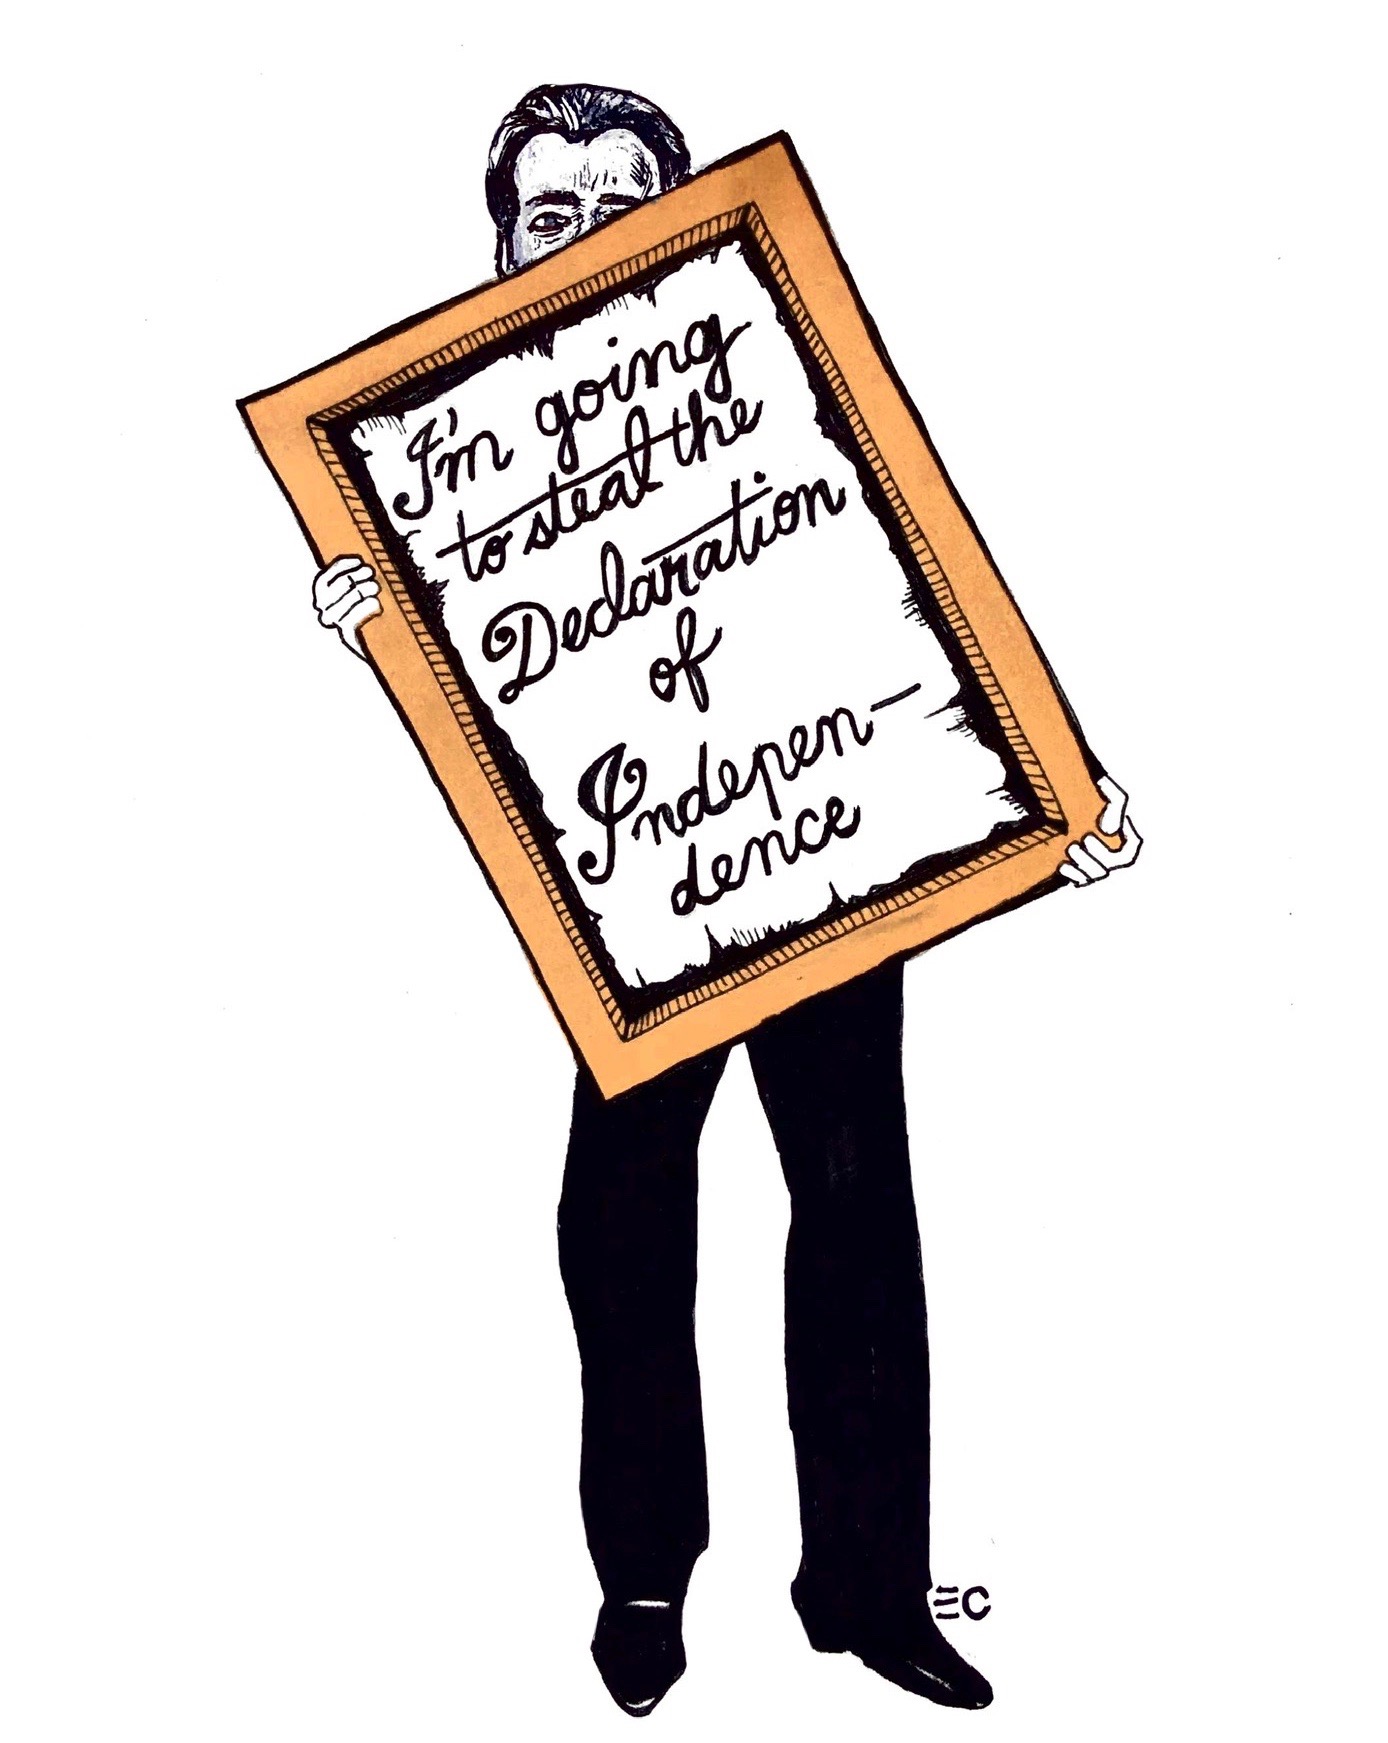 I'm going
to steal the
Declaration
of
Indepen-
dence
EC